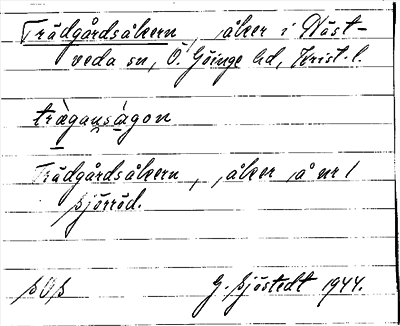 Trädgårdsåkern, åker i Näst-
veda sn, Ö. Göinge hd, Krist. l.
trägansågon
Trädgårdsåkern, åker å nr 1
Sjöröd.
G. Sjöstedt 1944.